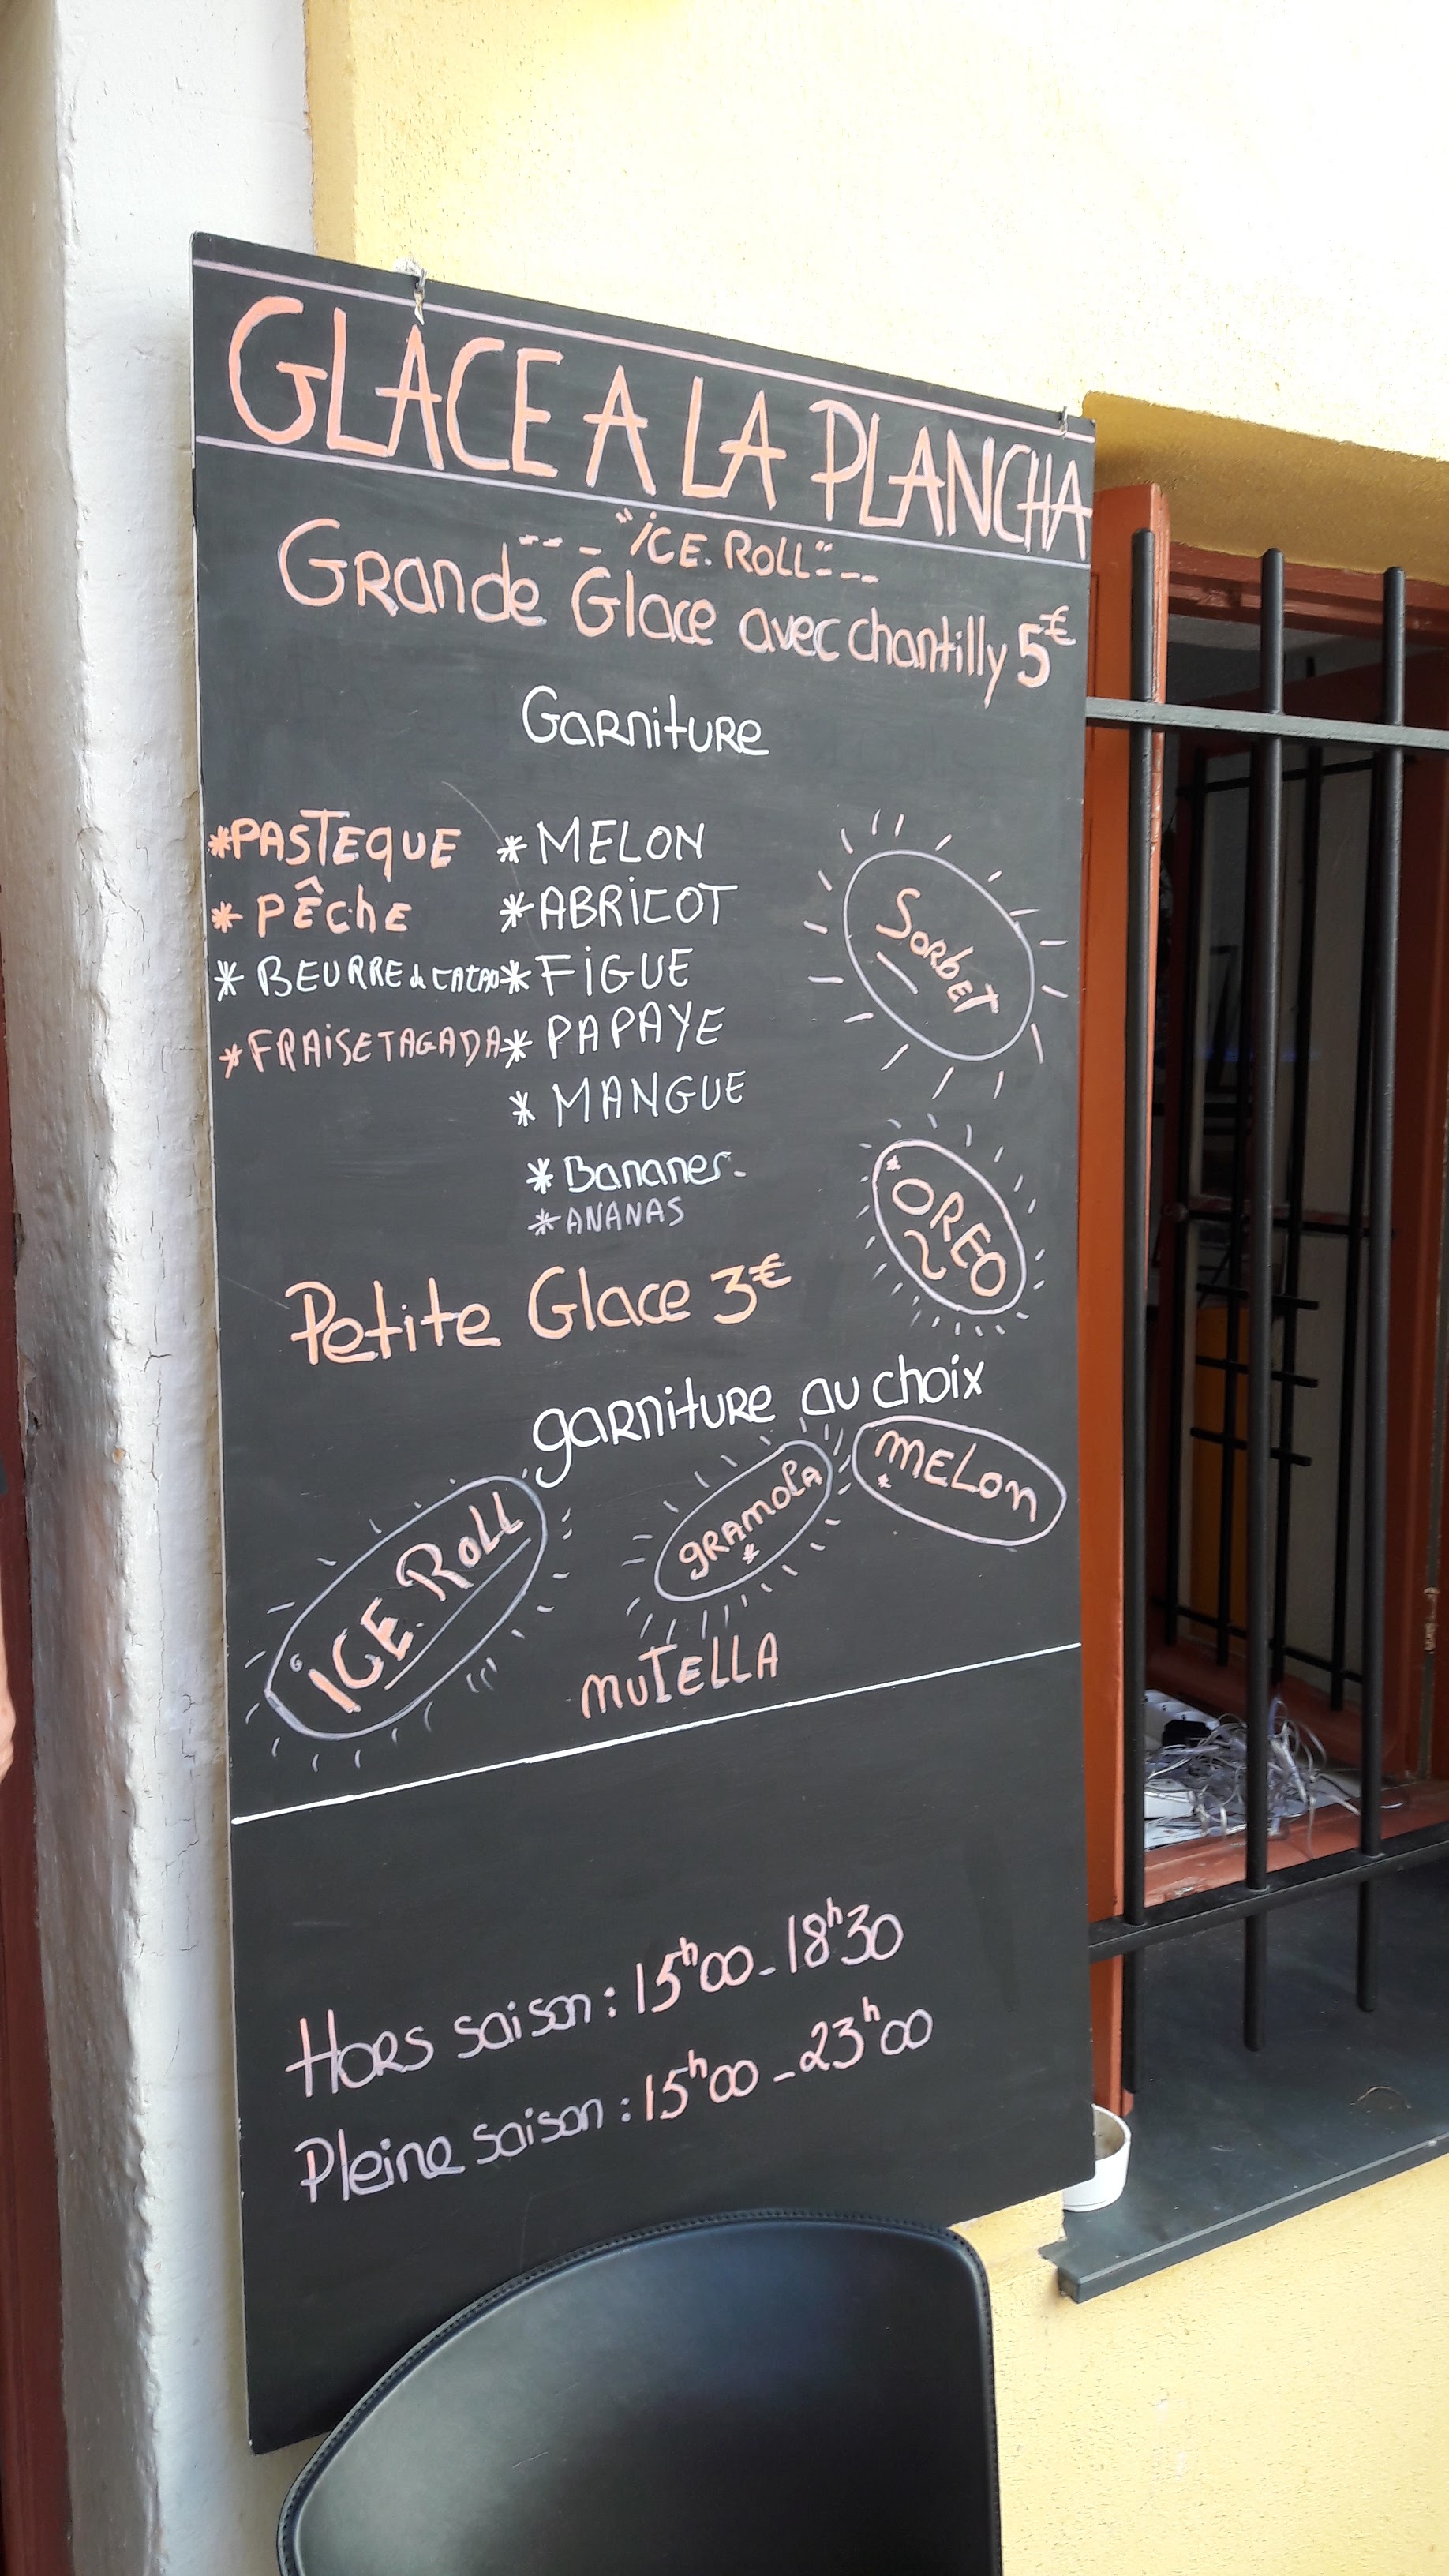 GLACE A LA PLANCHA
--- "ICE.ROLL" ---
Grande Glace avec chantilly 5€
Garniture
*PASTEQUE *MELON
*PÊChE *ABRICOT
*BEURRE de CACAO *FIGUE
*FRAISE TAGADA *PAPAYE
*MANGUE
*Bananes.
*ANANAS
SORBET
OREO
Petite Glace 3€
garniture au choix
ICE.ROLL
gRAMOLA
MELON
MUTELLA
Hors saison : 15h00 - 18h30
Pleine saison : 15h00 - 23h00